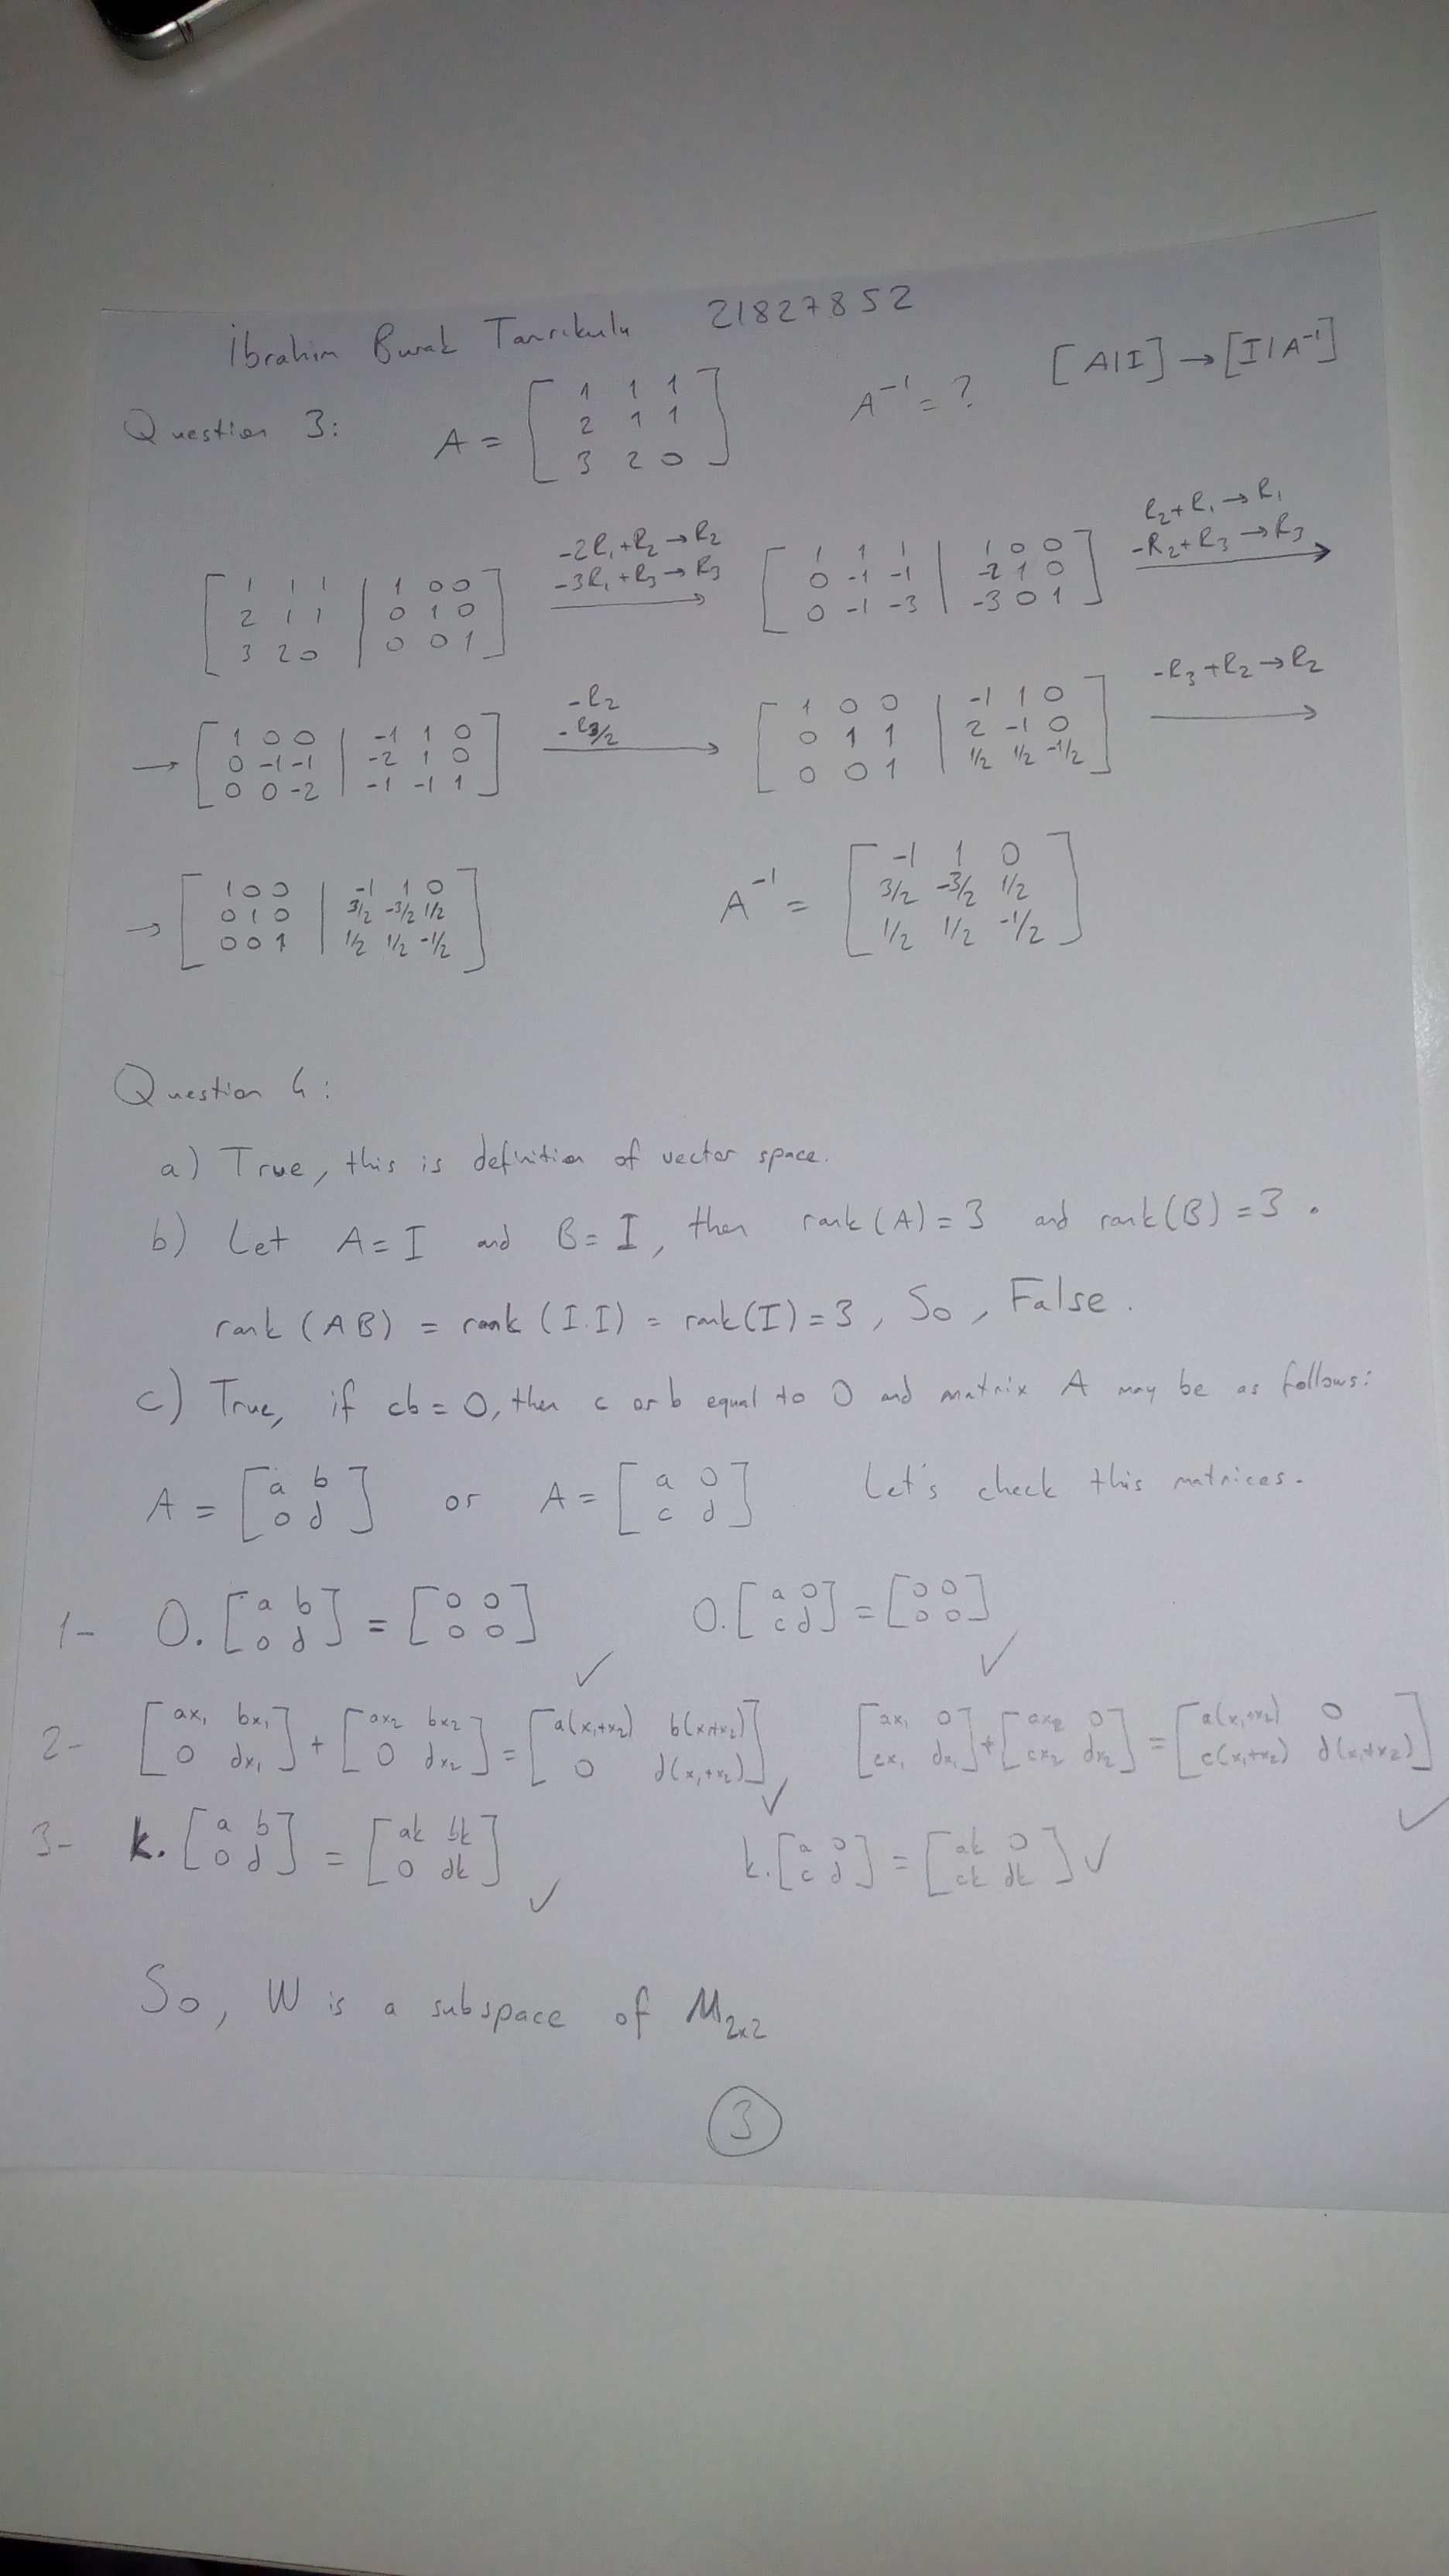 İbrahim Burak Tanrıkulu 21827852
Question 3: A = [1 1 1; 2 1 1; 3 2 0] A⁻¹ = ? [A|I] → [I|A⁻¹]
[1 1 1 | 1 0 0; 2 1 1 | 0 1 0; 3 2 0 | 0 0 1] -2R₁+R₂→R₂ -3R₁+R₃→R₃ → [1 1 1 | 1 0 0; 0 -1 -1 | -2 1 0; 0 -1 -3 | -3 0 1] R₂+R₁→R₁ -R₂+R₃→R₃ →
→ [1 0 0 | -1 1 0; 0 -1 -1 | -2 1 0; 0 0 -2 | -1 -1 1] -R₂ -R₃/2 → [1 0 0 | -1 1 0; 0 1 1 | 2 -1 0; 0 0 1 | 1/2 1/2 -1/2] -R₃+R₂→R₂ →
→ [1 0 0 | -1 1 0; 0 1 0 | 3/2 -3/2 1/2; 0 0 1 | 1/2 1/2 -1/2] A⁻¹ = [-1 1 0; 3/2 -3/2 1/2; 1/2 1/2 -1/2]
Question 4:
a) True, this is definition of vector space.
b) Let A=I and B=I, then rank(A)=3 and rank(B)=3.
rank(AB) = rank(I.I) = rank(I)=3, So, False.
c) True, if cb=0, then c or b equal to 0 and matrix A may be as follows:
A = [a b; 0 d] or A = [a 0; c d] Let's check this matrices.
1- 0.[a b; 0 d] = [0 0; 0 0] ✓ 0.[a 0; c d] = [0 0; 0 0] ✓
2- [ax₁ bx₁; 0 dx₁] + [ax₂ bx₂; 0 dx₂] = [a(x₁+x₂) b(x₁+x₂); 0 d(x₁+x₂)] ✓ [ax₁ 0; cx₁ dx₁] + [ax₂ 0; cx₂ dx₂] = [a(x₁+x₂) 0; c(x₁+x₂) d(x₁+x₂)] ✓
3- k.[a b; 0 d] = [ak bk; 0 dk] ✓ k.[a 0; c d] = [ak 0; ck dk] ✓
So, W is a subspace of M₂ₓ₂
3